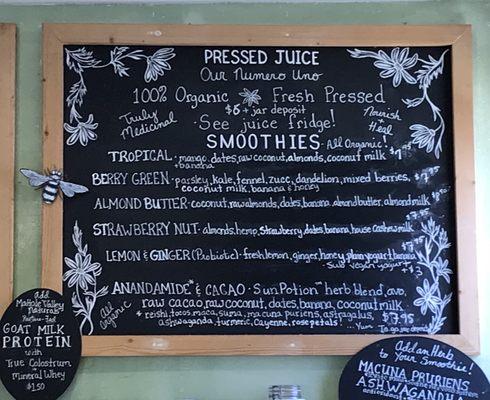 PRESSED JUICE
Our Numero Uno
100% Organic Fresh Pressed
$8 + jar deposit
Truly
Medicinal
Nourish
+
Heal
See juice fridge!
SMOOTHIES - All Organic!
TROPICAL - mango, dates, raw coconut, almonds, coconut milk
+ banana
BERRY GREEN - parsley, kale, fennel, zucc, dandelion, mixed berries,
coconut milk, banana & honey
ALMOND BUTTER - coconut, raw almonds, dates, banana, almond butter, almond milk
STRAWBERRY NUT - almonds, hemp, strawberry, dates, banana, house cashew milk
LEMON & GINGER (Probiotic) - fresh lemon, ginger, honey, plain yogurt, banana
Sub vegan yogurt
ANANDAMIDE & CACAO - Sun Potion™ herb blend, avo,
raw cacao, raw coconut, dates, banana, coconut milk
+ reishi, tocos, maca, suma, mucuna puriens, astragalus,
ashwaganda, turmeric, Cayenne, rose petals!
All
Organic
Yum
To go jar deposit
Add
Mattole Valley
Naturals
Pasture-Fed
GOAT MILK
PROTEIN
with
True Colostrum
+
Mineral Whey
$1.50
Add an Herb
to Your Smoothie!
MACUNA PRURIENS
ASHWAGANDHA